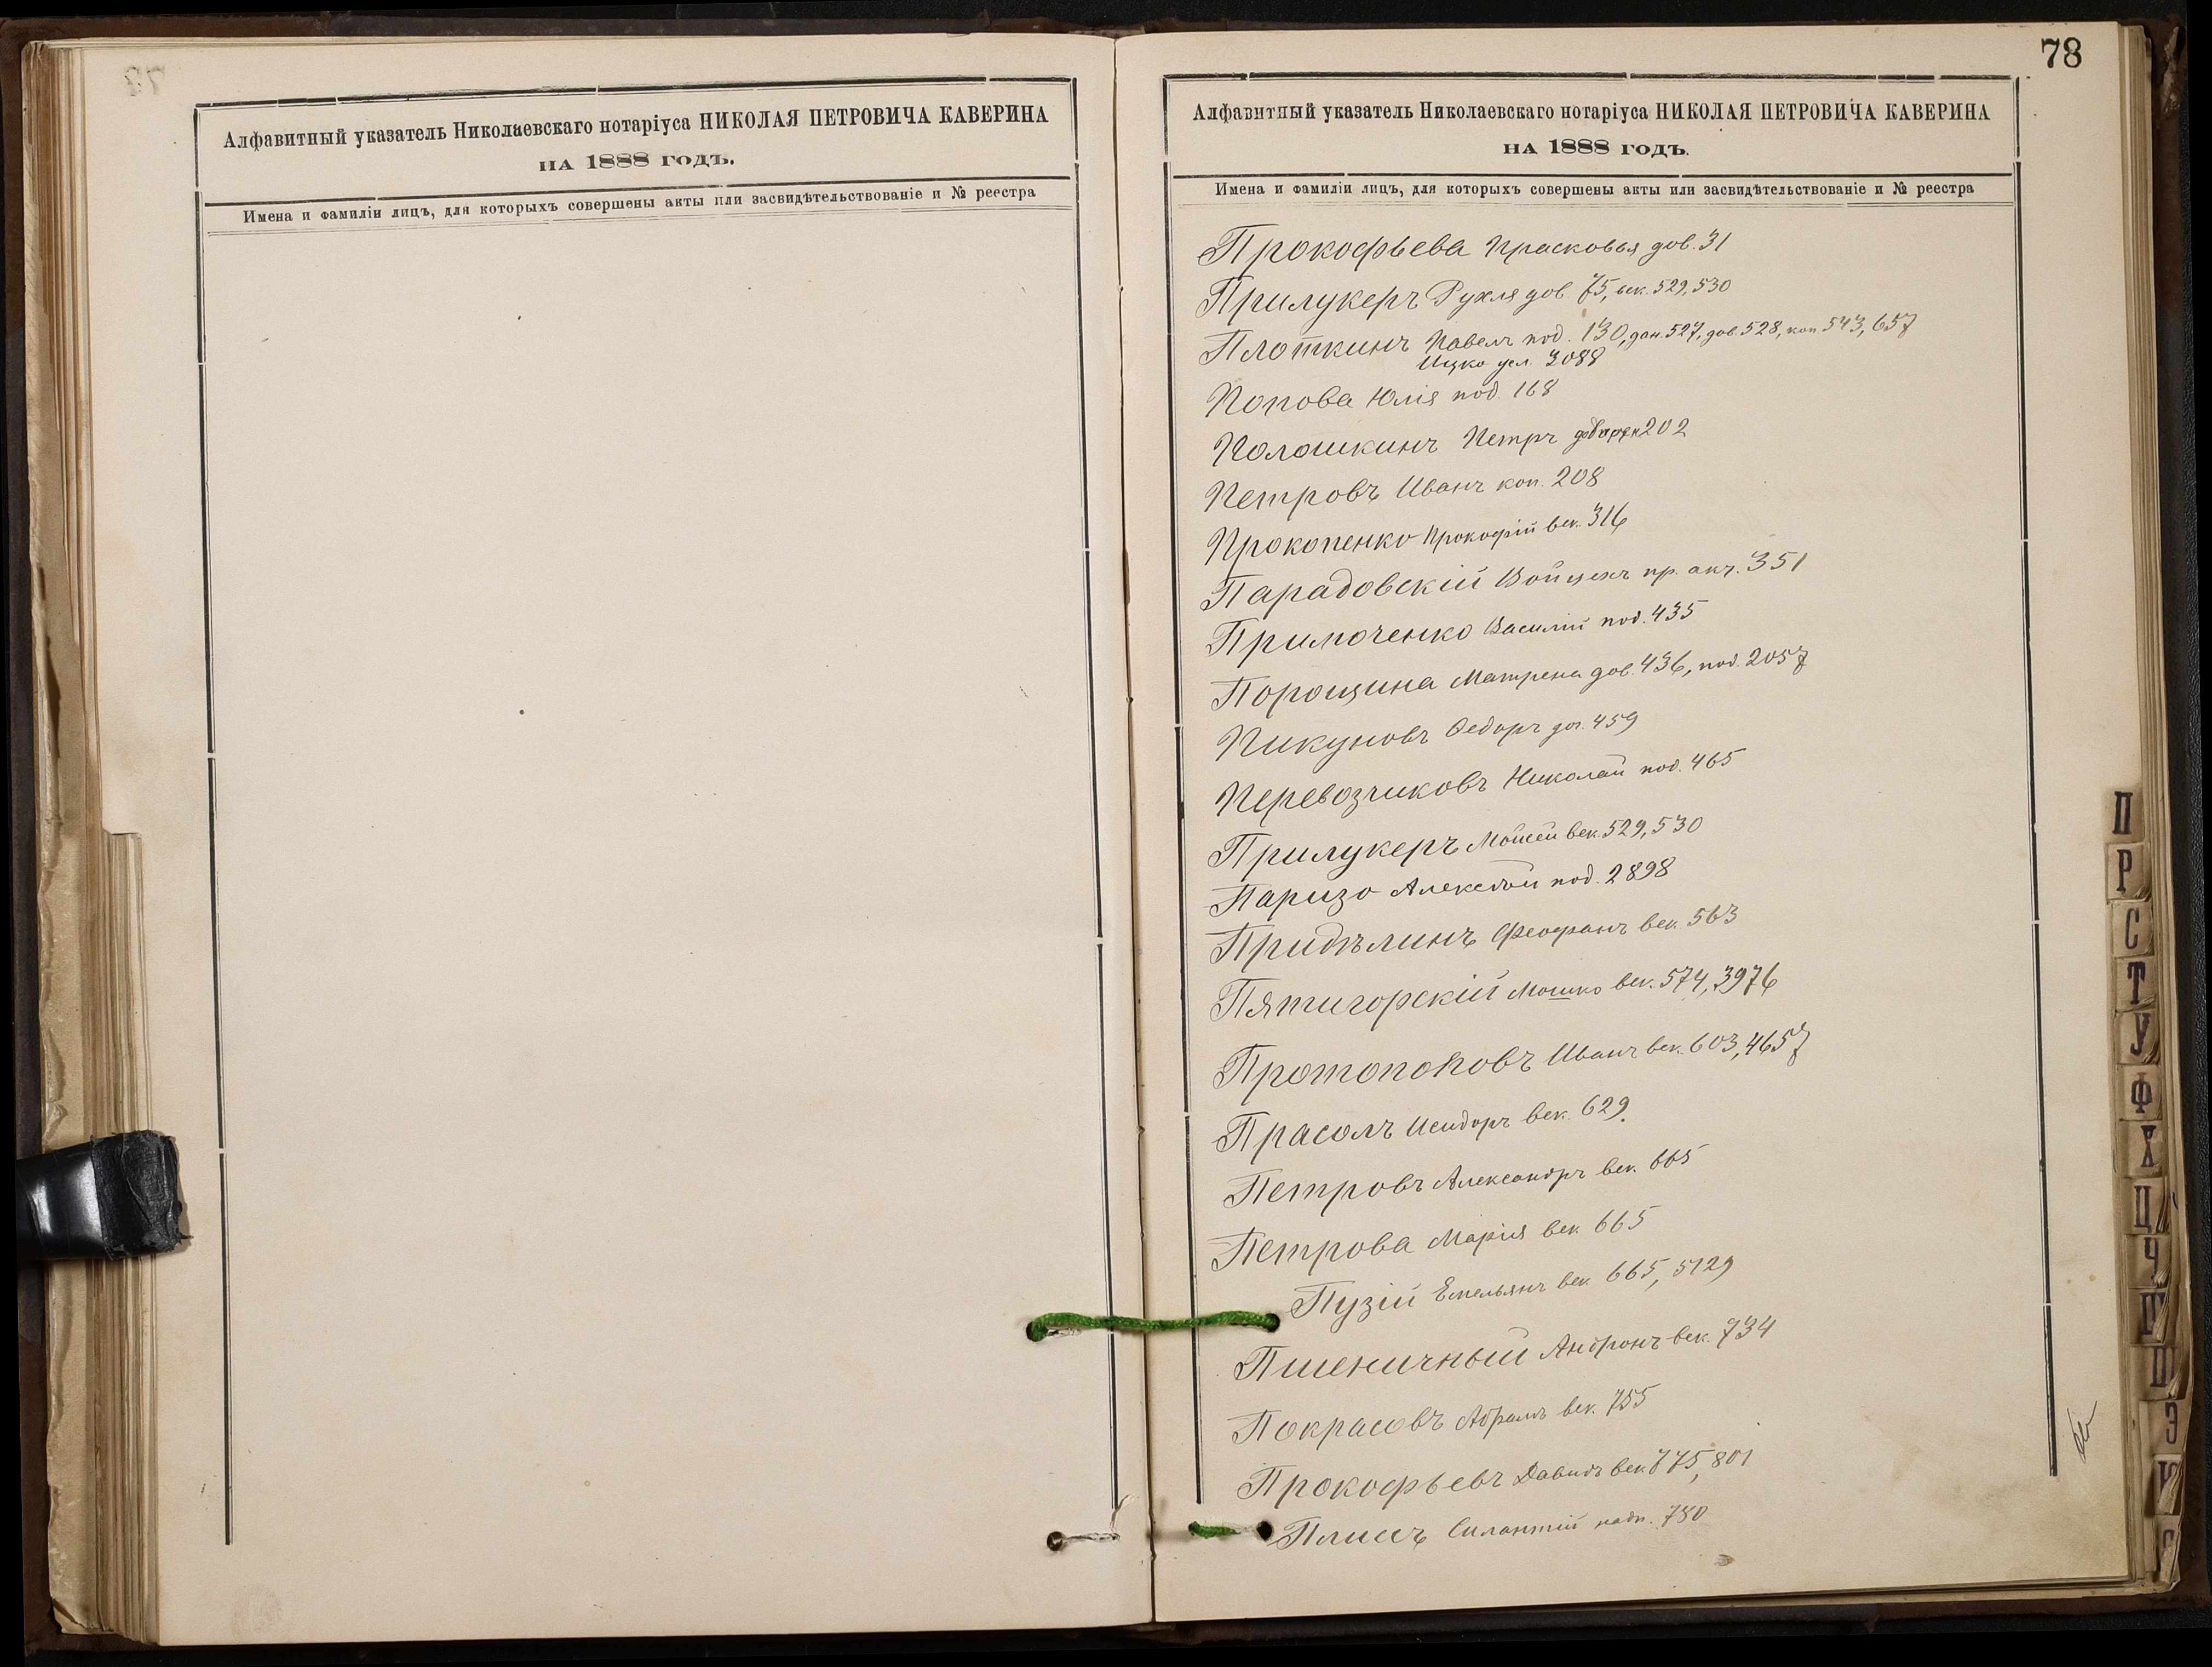 Алфавитный указатель Николаевскаго нотаріуса НИКОЛАЯ ПЕТРОВИЧА КАВЕРИНА
НА 1888 ГОДЪ.
Имена и фамиліи лицъ, для которыхъ совершены акты или засвидѣтельствованіе и № реестра
78
Алфавитный указатель Николаевскаго нотаріуса НИКОЛАЯ ПЕТРОВИЧА КАВЕРИНА
НА 1888 ГОДЪ.
Имена и фамиліи лицъ, для которыхъ совершены акты или засвидѣтельствованіе и № реестра
Прокофьева Прасковья дов. 31
Прилукеръ Рухля дов. 75, век. 529, 530
Плоткинъ Павелъ под. 130, дан. 527, дов. 528, коп 543, 657
Ицко усл. 3088
Попова Юлія под. 168
Полошкинъ Петръ 202
Петровъ Иванъ коп. 208
Прокопенко Прокофій век. 316
Парадовскій Войцехъ пр. акт. 351
Примоченко Василій под. 435
Порощина Матрена дов. 436, под. 2057
Пикуновъ Ѳедоръ дог. 459
Перевозчиковъ Николай под. 465
Прилукеръ Мойсей век. 529, 530
Паризо Алексѣй под. 2898
Придѣлинъ Феофанъ век. 563
Пятигорскій Мошко век. 574, 3976
Протопоповъ Иванъ век. 603, 4657
Прасолъ Исидоръ век. 629.
Петровъ Александръ век. 665
Петрова Марія век. 665
Пузій Емельянъ век. 665, 5129
Пшеничный Андронъ век. 734
Покрасовъ Абрамъ век. 755
Прокофьевъ Давидъ век. 775, 801
Плиссъ Силантій надп. 780
П
Р
С
Т
У
Ф
Х
Ц
Ч
Ш
Щ
Э